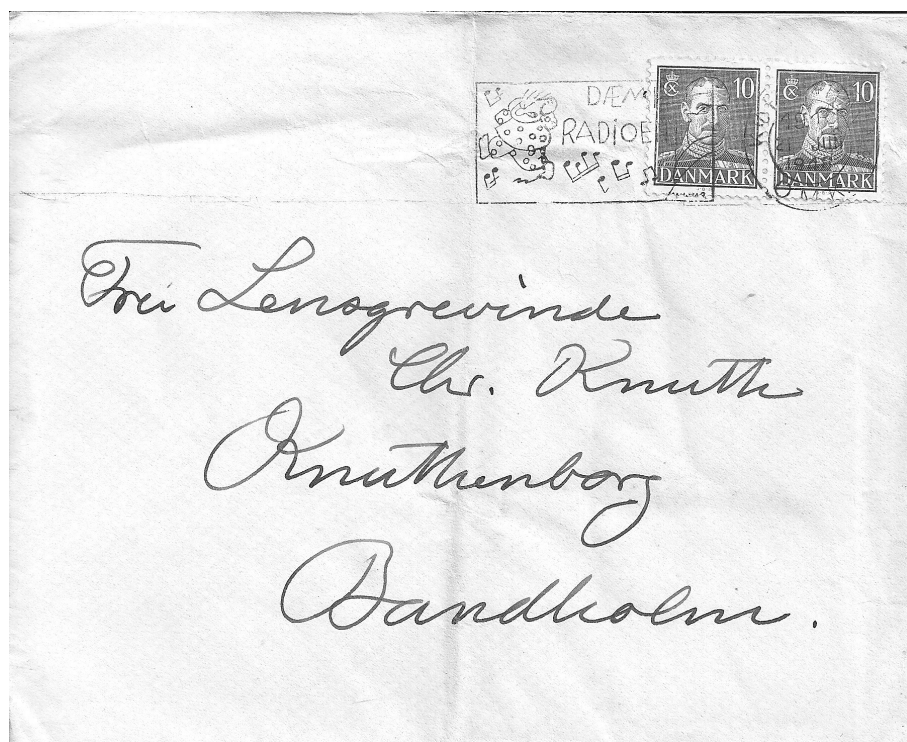 DÆM
RADIOE
10 10
DANMARK DANMARK
Frei Lensgrevinde
Chr. Knuth
Knuthenborg
Bandholm.